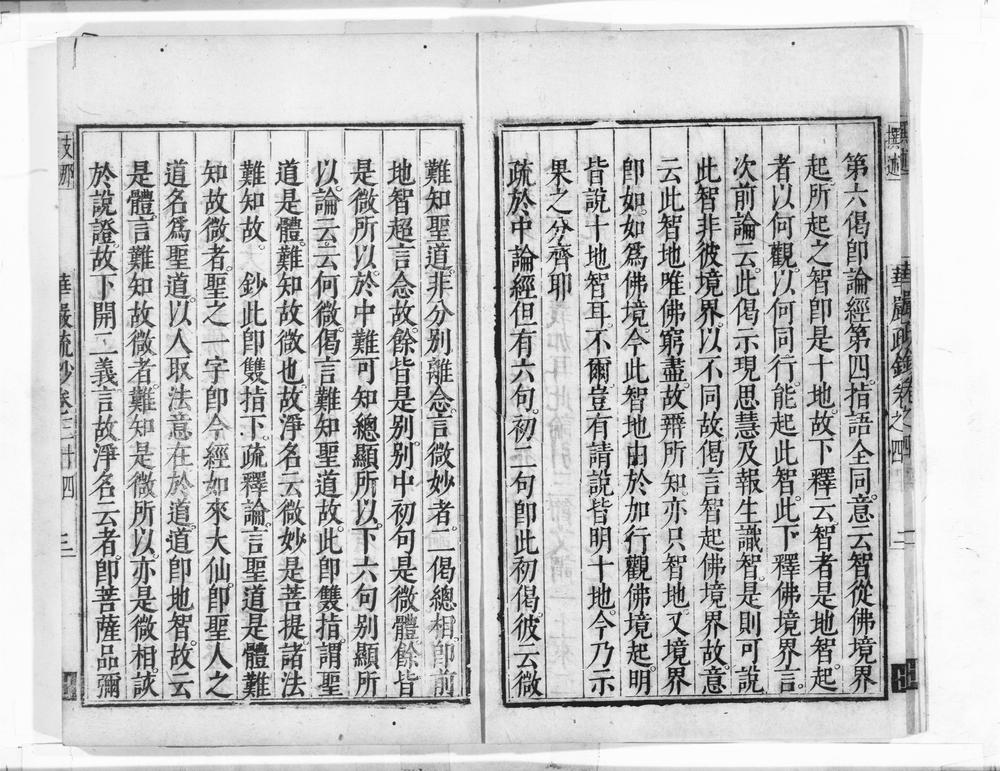 第六偈卽論經第四指語全同意云智從佛境界
起所起之智卽是十地故下釋云智者是地智起
者以何觀以何同行能起此智此下釋佛境界言
次前論云此偈示現思慧及報生識智是則可說
此智非彼境界以不同故偈言智起佛境界故意
云此智地唯佛窮盡故辨所知亦只智地又境界
卽如如爲佛境今此智地由於加行觀佛境起明
皆說十地智耳不爾豈有請說皆明十地今乃示
果之分齊耶
疏於中論經但有六句初一句卽此初偈彼云微
難知聖道非分別離念言微妙者一偈總相卽前
地智超言念故餘皆是別別中初句是微體餘皆
是微所以於中難可知總顯所以下六句別顯所
以論云云何微偈言難知聖道故此卽雙指謂聖
道是體難知故微也故淨名云微妙是菩提諸法
難知故 鈔此卽雙指下疏釋論言聖道是體難
知故微者聖之一字卽今經如來大仙卽聖人之
道名爲聖道以人取法意在於道道卽地智故云
是體言難知故微者難知是微所以亦是微相該
於說證故下開二義言故淨名云者卽菩薩品彌
華嚴疏鈔卷三十四 三